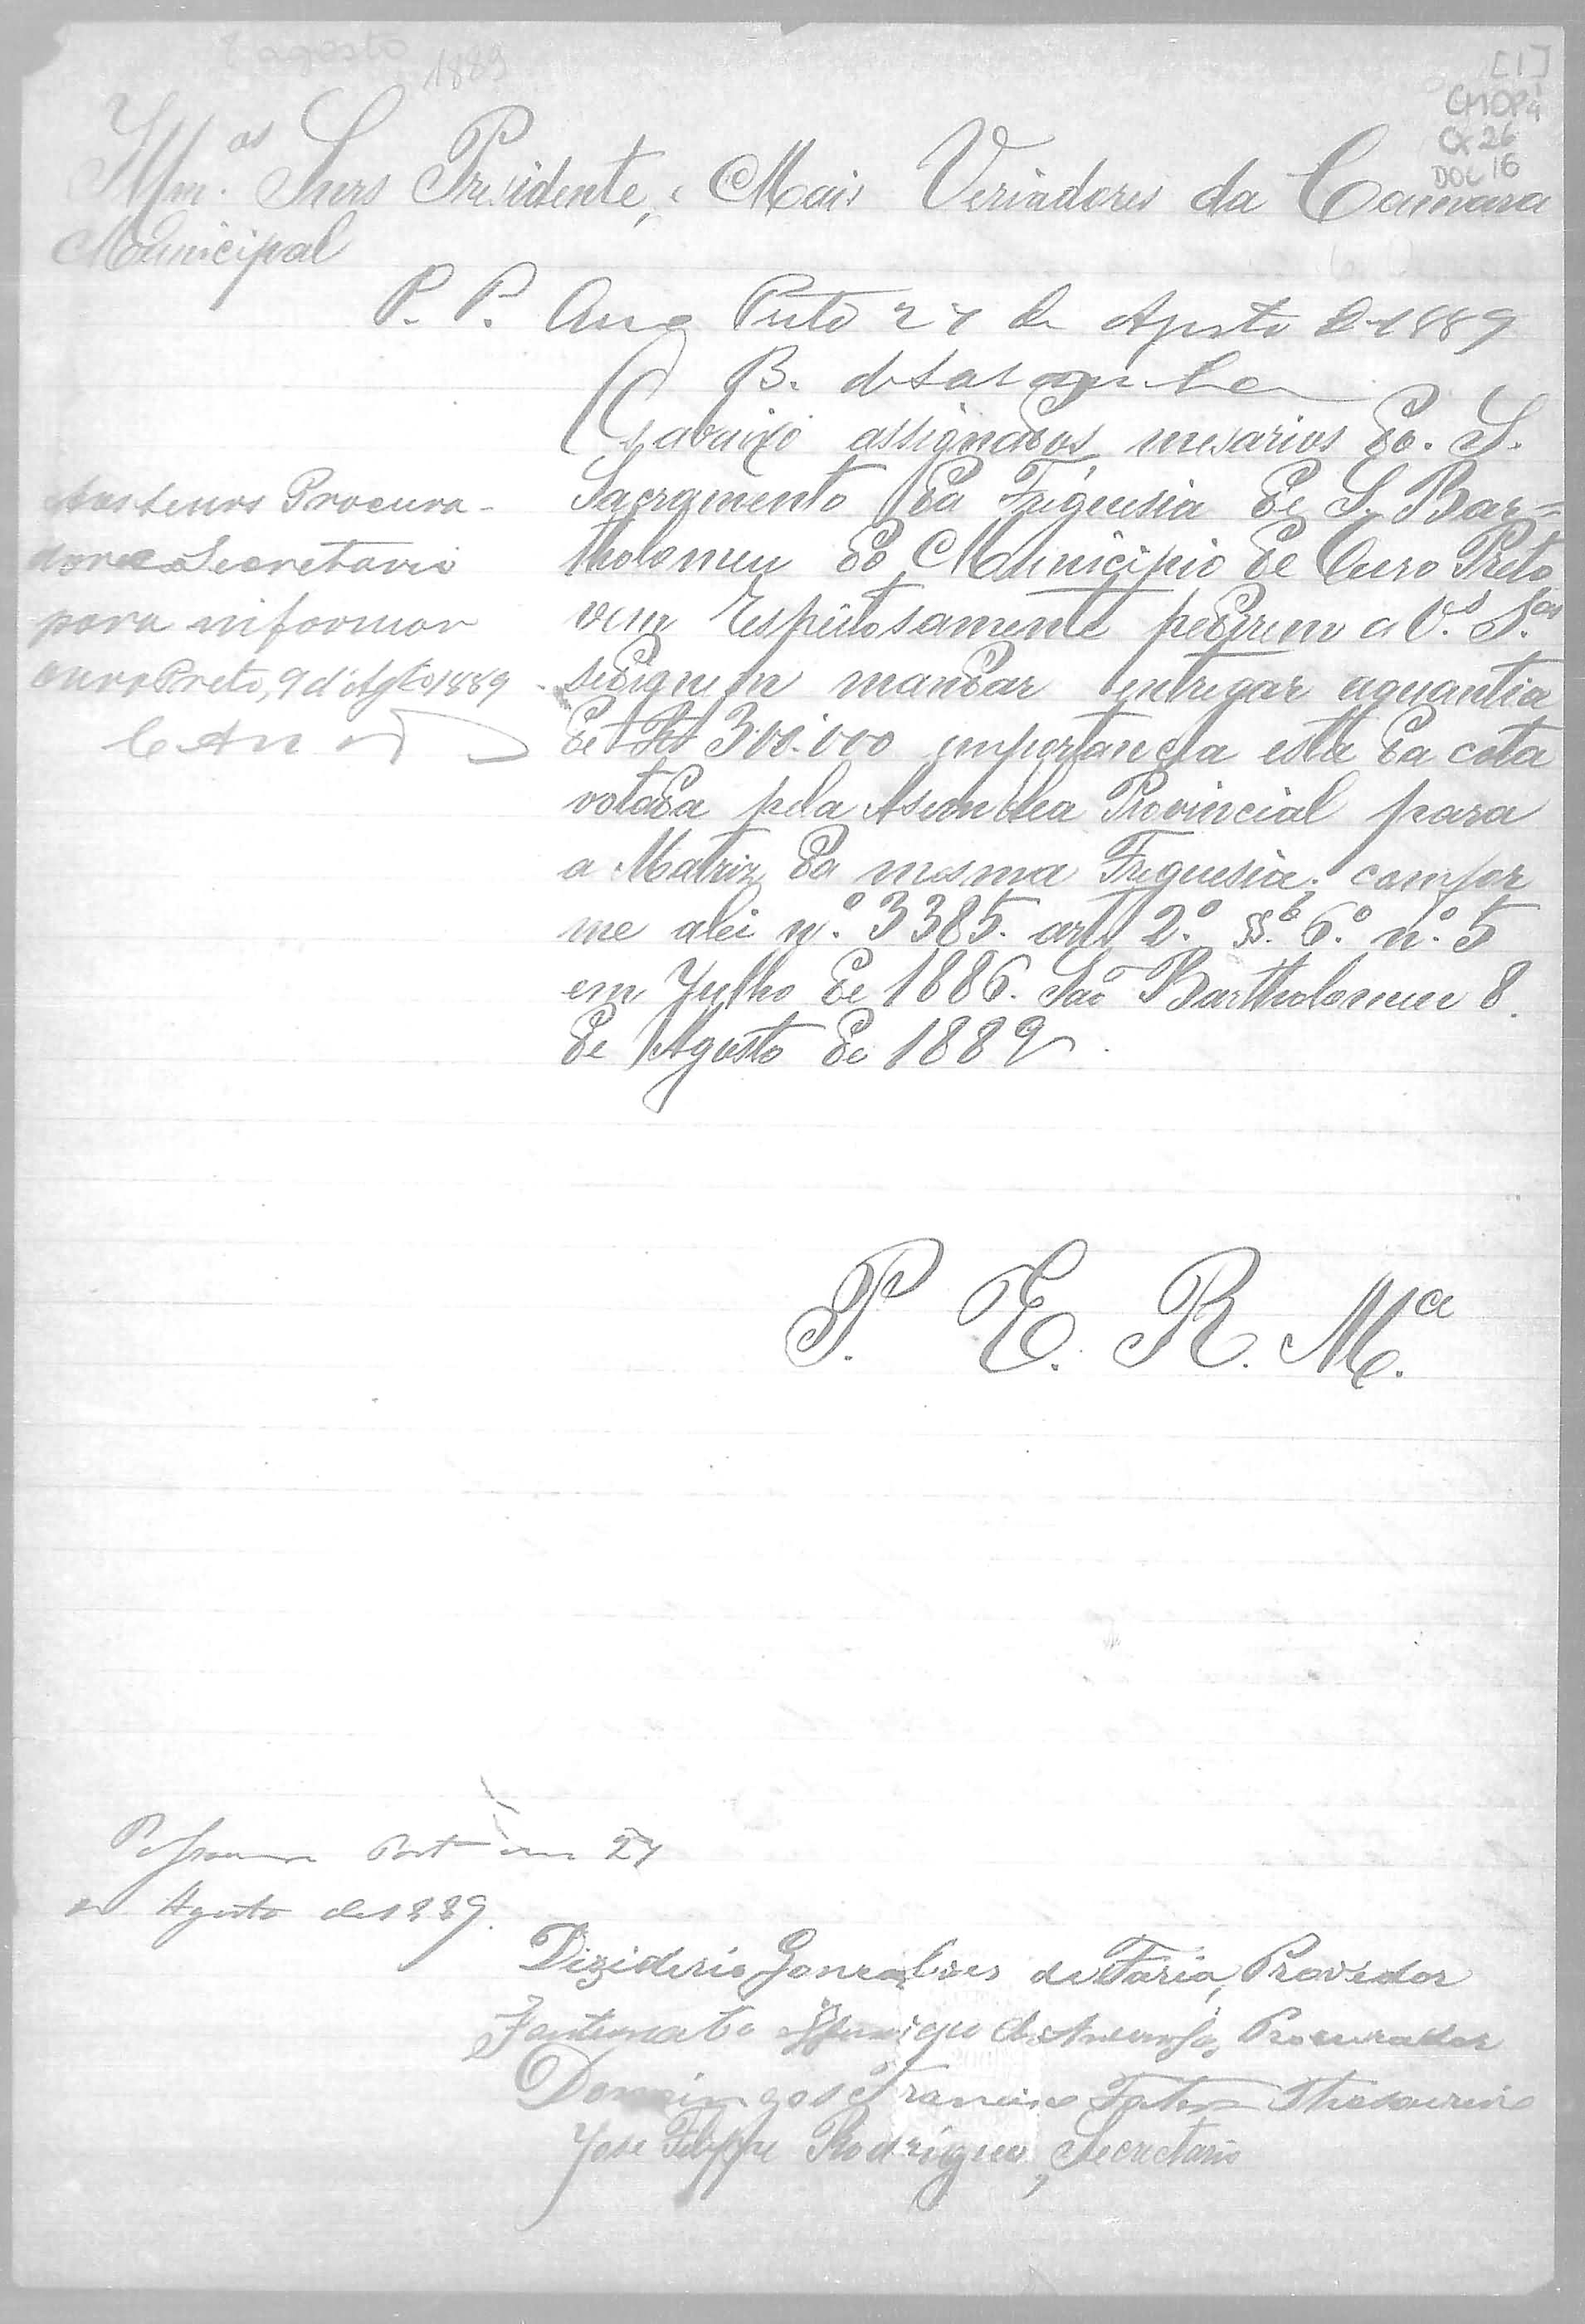 8 agosto
1889
[1]
CMOP
CX 26
DOC 16
Illm.os Snrs Presidente, e Mais Veriadores da Camara
Municipal
P. P. Ouro Preto 27 de Agosto de 1889
Os abaixo assignados mesarios do S.
Sacramento da Freguesia de S. Bar=
tholomeu do Municipio de Ouro Preto
vem respeitosamente pedirem a V.s S.as
se dignem mandar entregar aquantia
de Rs 300.000 importancia esta da cota
votada pela Assemblea Provincial para
a Matriz da mesma Freguesia; comfor
me alei n.º 3385. art. 2.º §§. 6.º n.º 5
em Julho de 1886. São Bartholomeu 8
de Agosto de 1889
Aos Senrs Procura-
dor e Secretario
para informar
Ouro Preto, 9 d'Agto 1889
P. E. R. M.ce
Port em 27
de Agosto de 1889.
Diziderio Gonçalves de Faria, Provedor
Fortunato Procurador
Domingos Francisco Thesoureiro
Jose Felippe Rodrigues, Secretario